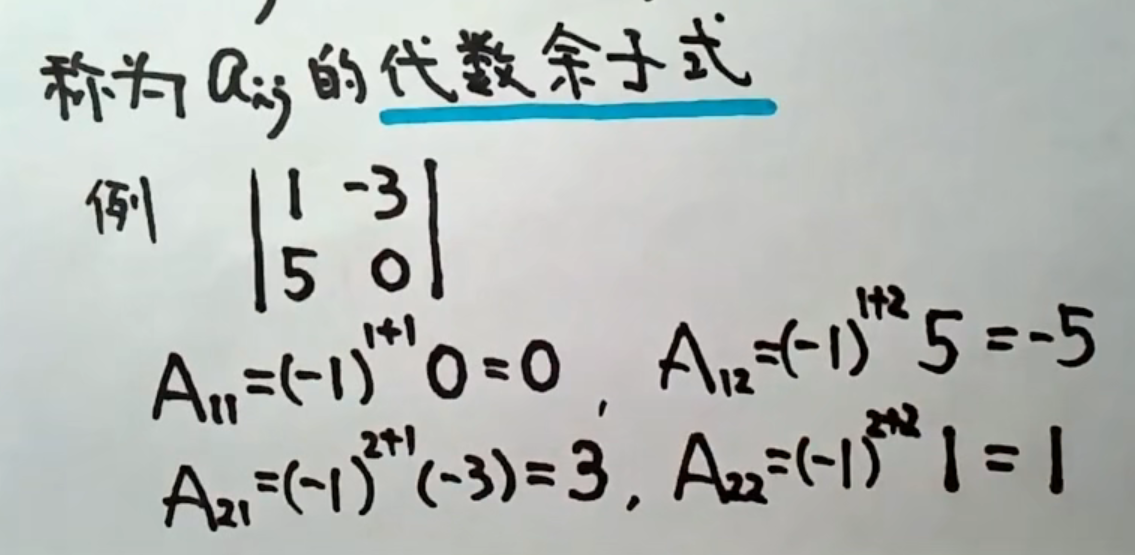 称为 aᵢⱼ 的代数余子式
例 | 1 -3 |
| 5 0 |
A₁₁=(-1)¹⁺¹ 0=0, A₁₂=(-1)¹⁺² 5=-5
A₂₁=(-1)²⁺¹(-3)=3, A₂₂=(-1)²⁺² 1=1